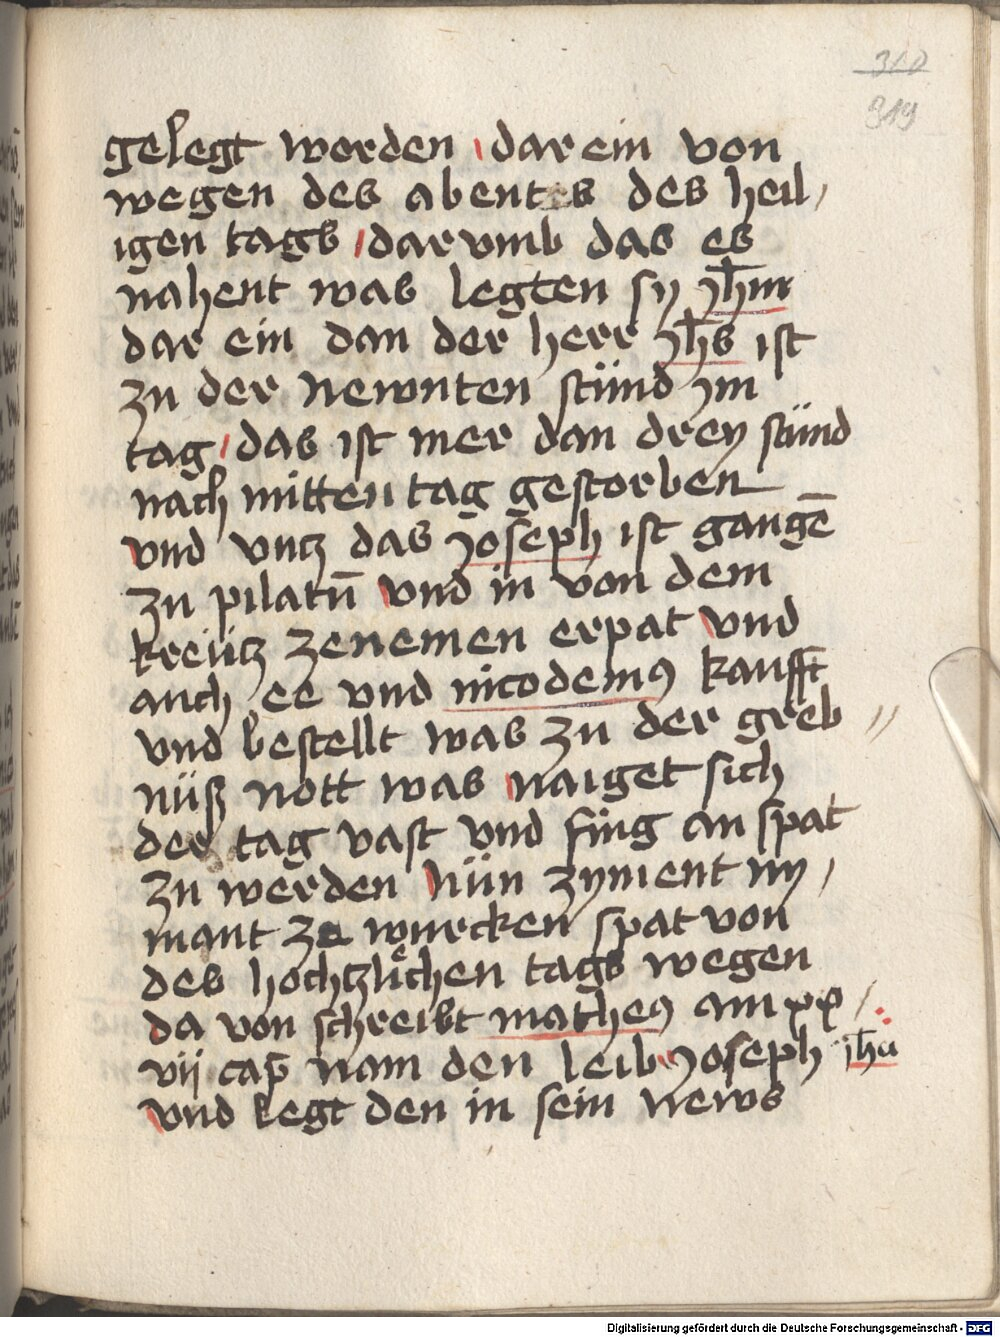 310
319
gelegt werden dar ein von
wegen des abentes des heil,
igen tags dar vmb das es
nahent was legten sy jh̄m
dar ein dan der herr jh̄s ist
zu der newnten stünd jm
tag das ist mer dan drey stünd
nach mitten tag gestorben
vnd vntz das joseph ist gangē
zu pilatū vnd in von dem
kreütz zenemen erpat vnd
auch ee vnd nicodemꝯ kaufft
vnd bestellt was zu der greb //
nüß nott was naiget sich
der tag vast vnd fing an spat
zu werden Nün zyment ny,
mant ze wurcken spat von
des hochtzlichen tags wegen
da von schreibt matheꝯ am xx /
vij cap nam den leib joseph jh̄u
vnd legt den in sein news
Digitalisierung gefördert durch die Deutsche Forschungsgemeinschaft - DFG